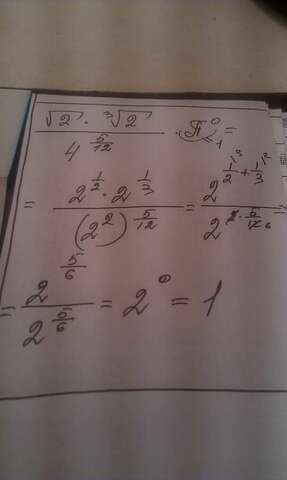 √2 · ³√2 / 4^(5/12) · π⁰ = 1
= 2^(1/2) · 2^(1/3) / (2²)^(5/12) = 2^(1/2 + 1/3) / 2^(2 · 5/12 6) =
= 2^(5/6) / 2^(5/6) = 2⁰ = 1